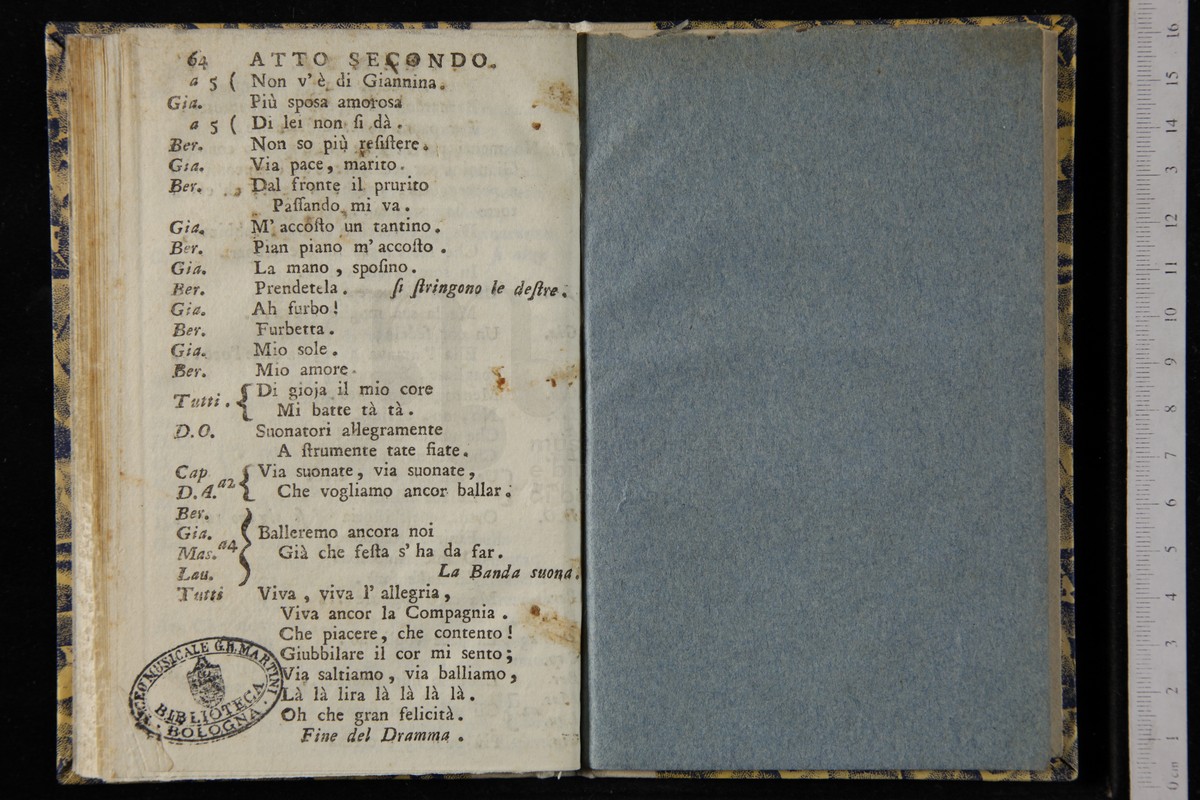 64 ATTO SECONDO.
a 5 ( Non v'è di Giannina.
Gia. Più sposa amorosa
a 5 ( Di lei non ſi dà.
Ber. Non so più reſiſtere.
Gia. Via pace, marito.
Ber. Dal fronte il prurito
Paſſando mi va.
Gia. M' accoſto un tantino.
Ber. Pian piano m' accoſto.
Gia. La mano, spoſino.
Ber. Prendetela. ſi ſtringono le deſtre.
Gia. Ah furbo!
Ber. Furbetta.
Gia. Mio sole.
Ber. Mio amore.
Tutti. { Di gioja il mio core
Mi batte tà tà.
D.O. Suonatori allegramente
A ſtrumente tate fiate.
Cap { Via suonate, via suonate,
D.A. a2 Che vogliamo ancor ballar.
Ber.
Gia. } Balleremo ancora noi
Mas. a4 Già che feſta s' ha da far.
Lau. La Banda suona.
Tutti Viva, viva l' allegria,
Viva ancor la Compagnia.
Che piacere, che contento!
Giubbilare il cor mi sento;
Via saltiamo, via balliamo,
Là là lira là là là là.
Oh che gran felicità.
Fine del Dramma.
LICEO MUSICALE G.B. MARTINI
BIBLIOTECA
BOLOGNA
16
15
14
13
12
11
10
9
8
7
6
5
4
3
2
1
0 cm